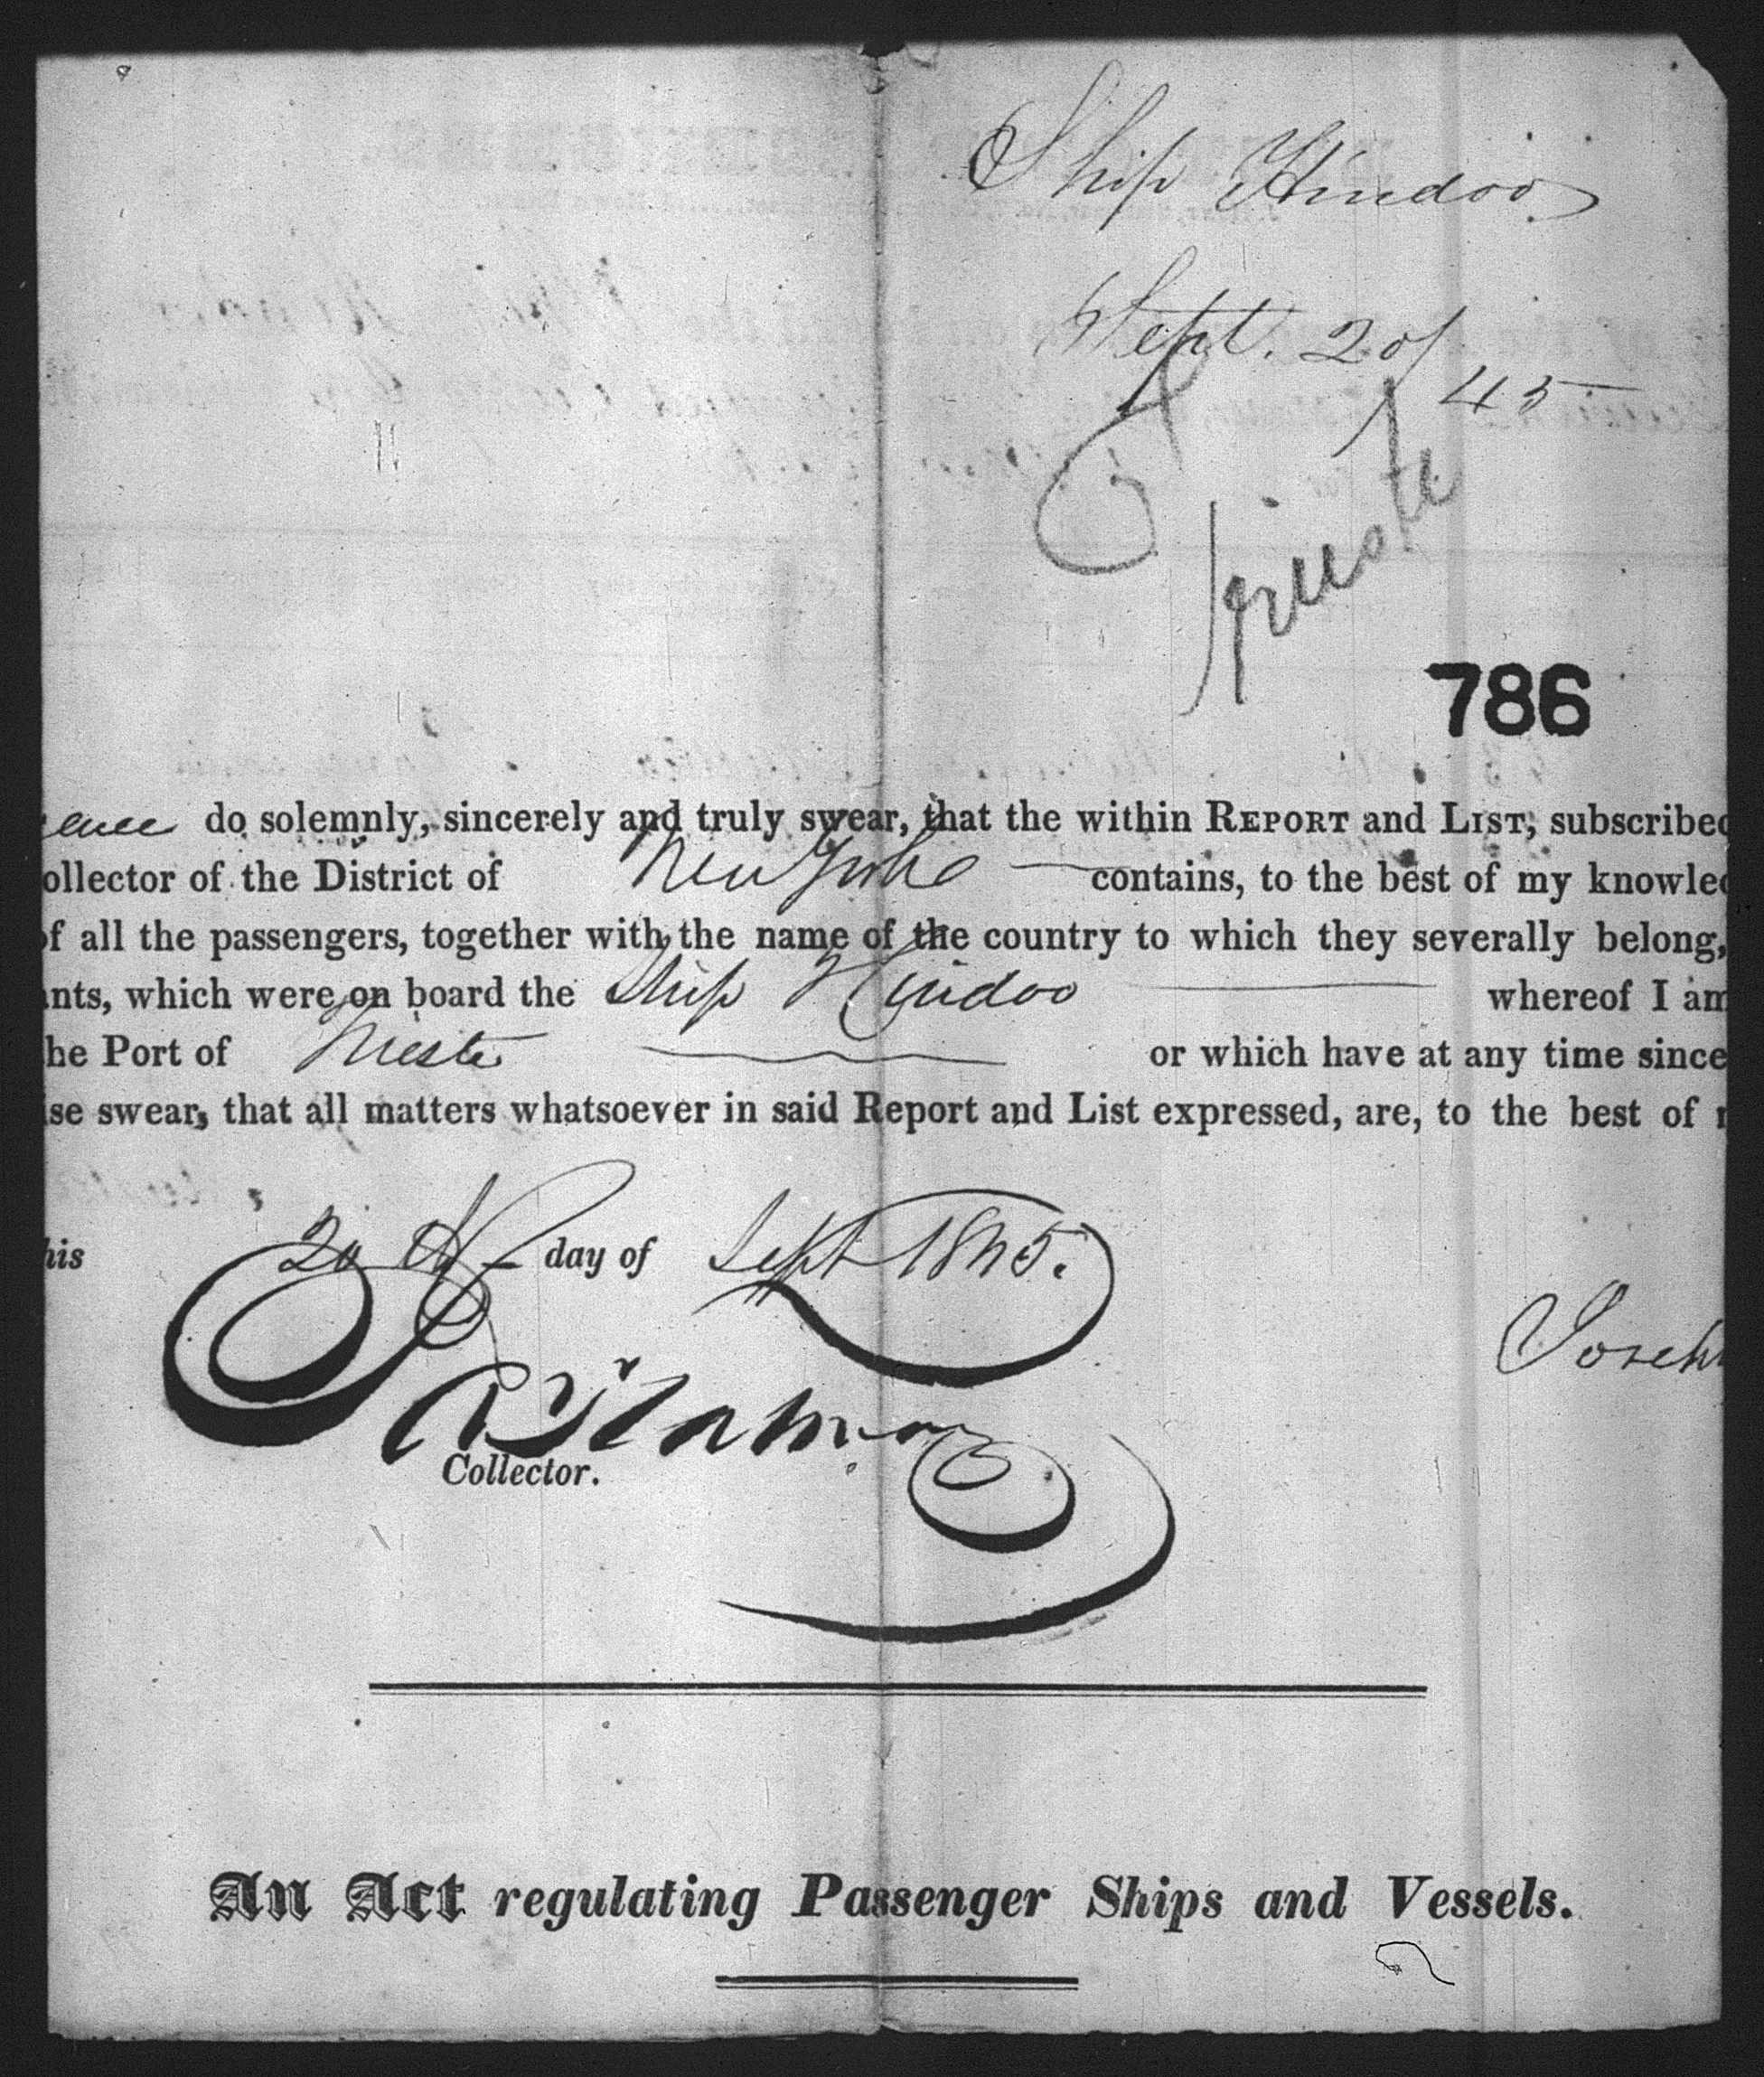 Ship Hindoo
Sept. 20/45
Trieste
786
do solemnly, sincerely and truly swear, that the within REPORT and LIST, subscribed
ollector of the District of New York contains, to the best of my knowled
of all the passengers, together with the name of the country to which they severally belong,
ants, which were on board the Ship Hindoo whereof I am
he Port of Trieste or which have at any time since
ise swear, that all matters whatsoever in said Report and List expressed, are, to the best of
his 20th day of Sept 1845.
Joseph
Collector.
An Act regulating Passenger Ships and Vessels.